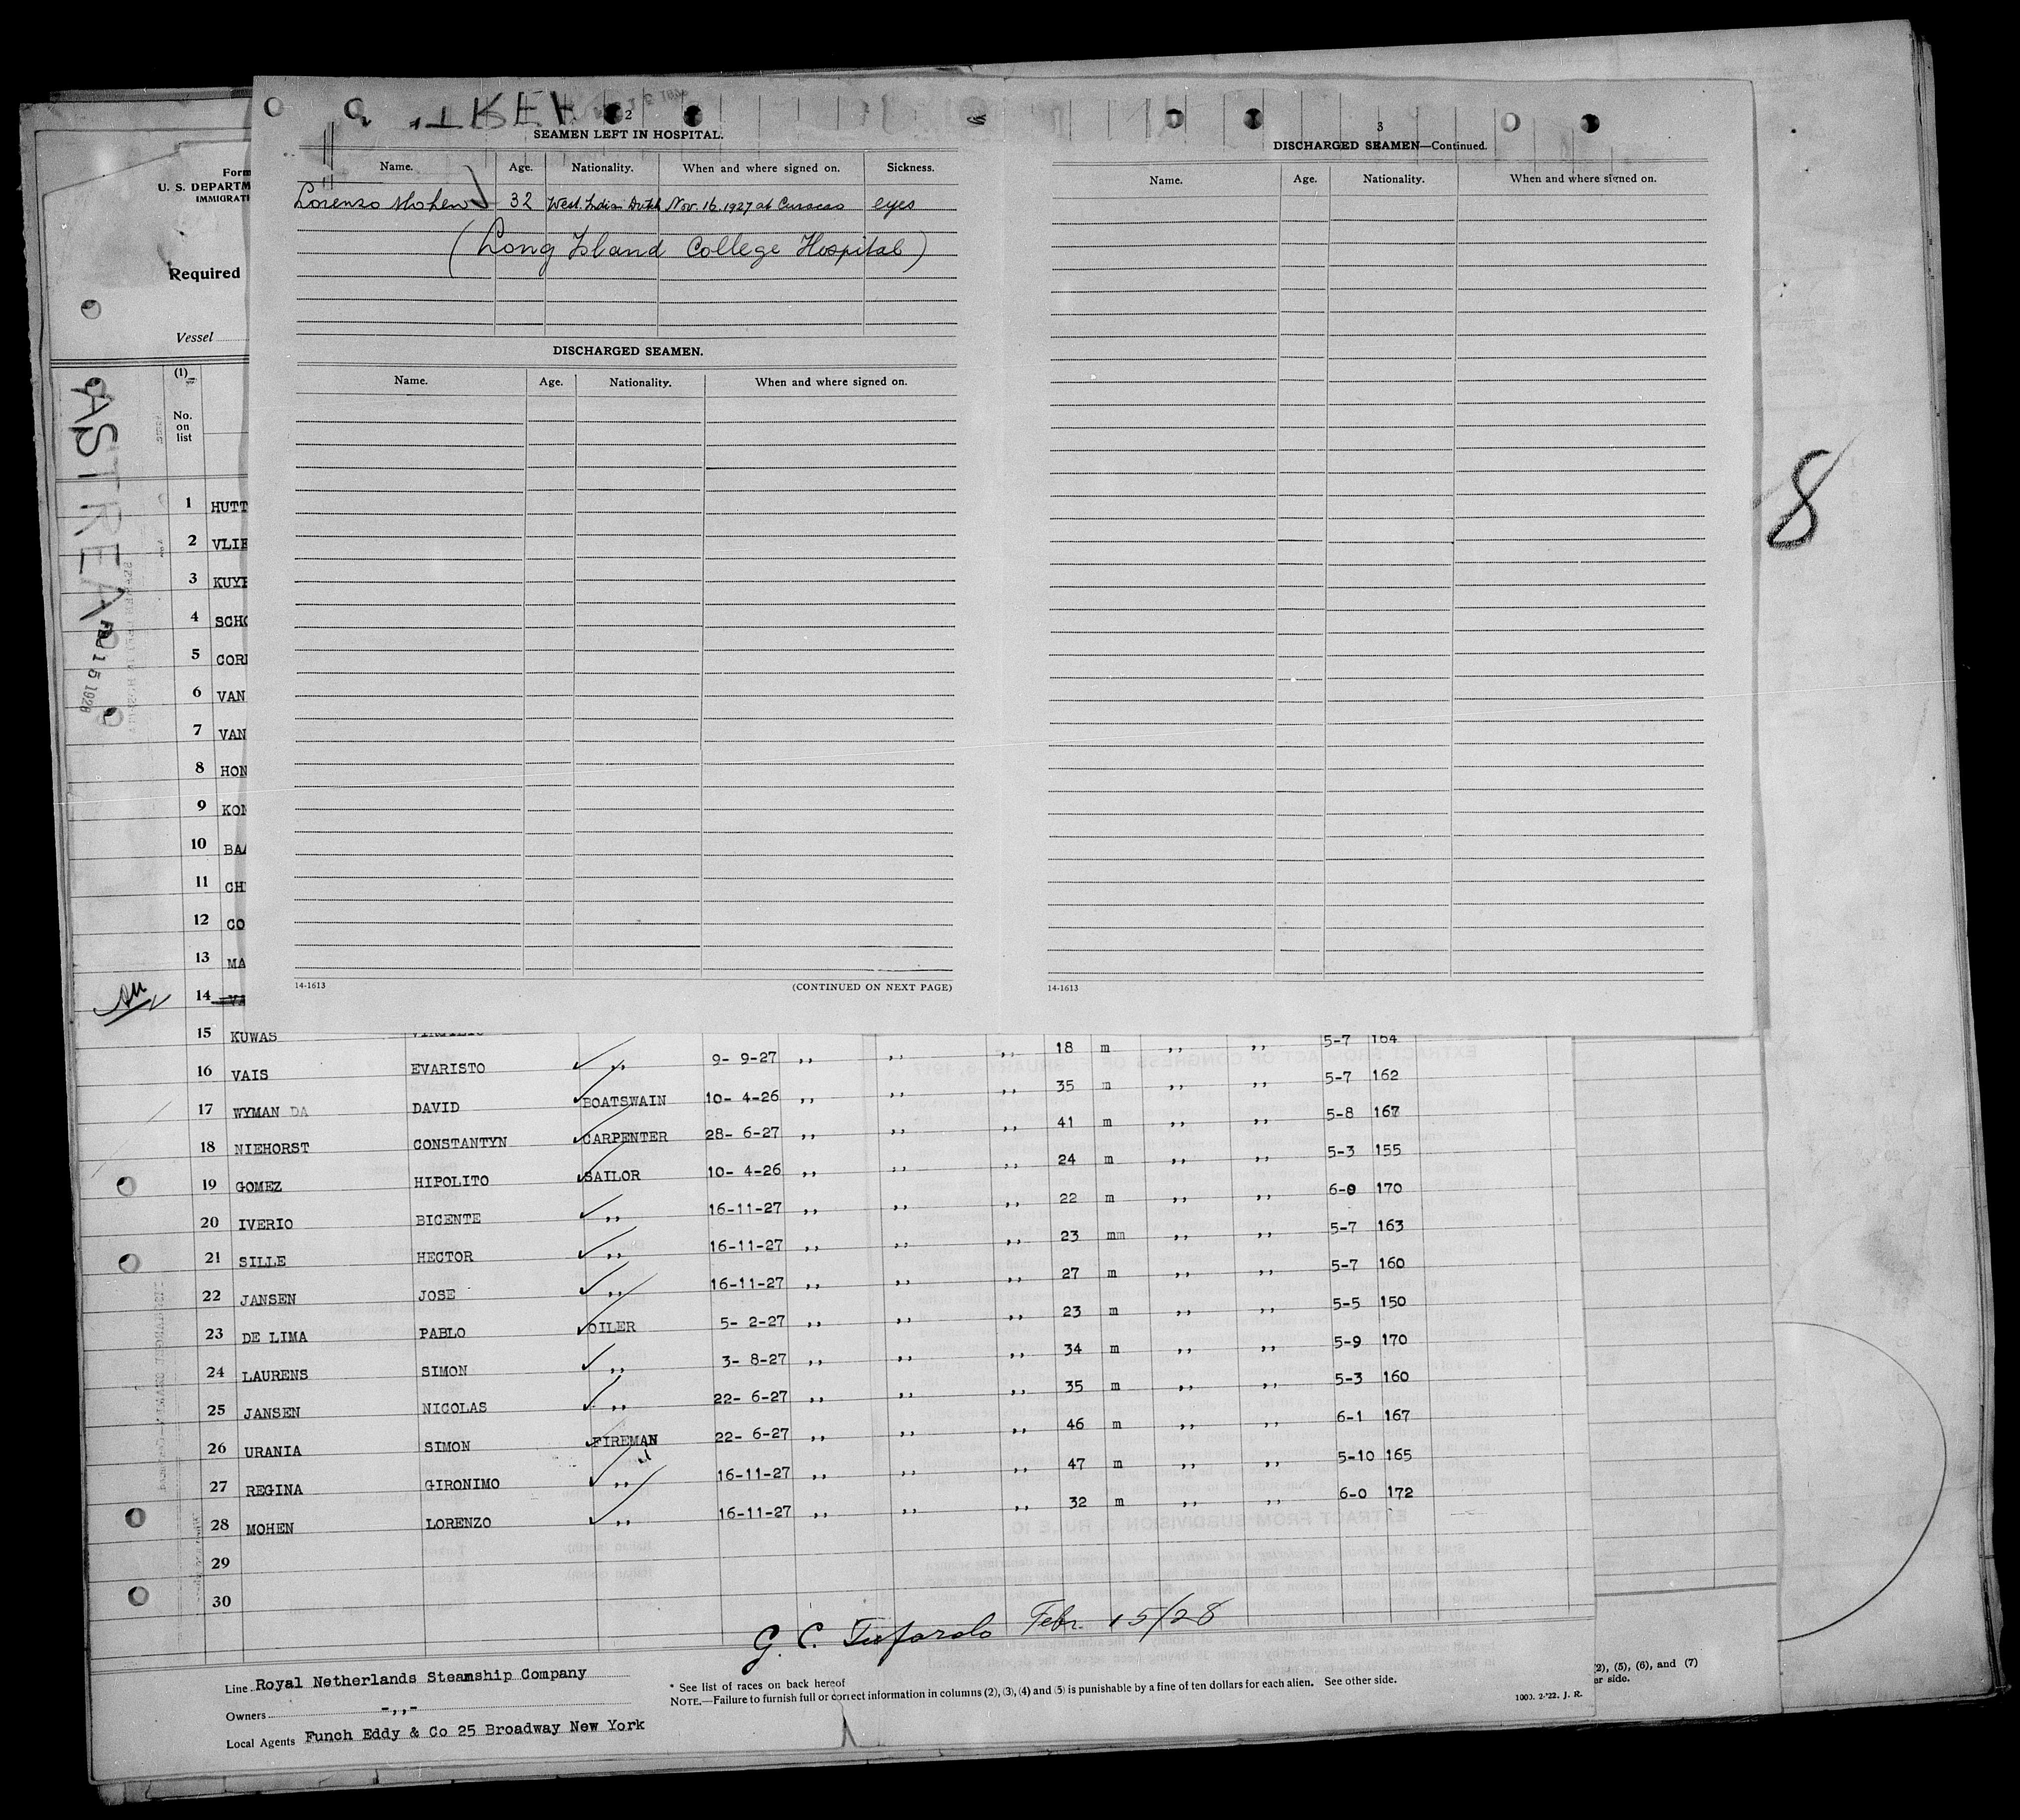 2
SEAMEN LEFT IN HOSPITAL.
Name. Age. Nationality. When and where signed on. Sickness.
Lorenzo Mohen 32 West. Indian Dutch Nov. 16. 1927 at Curacao eyes
(Long Island College Hospital)
DISCHARGED SEAMEN.
Name. Age. Nationality. When and where signed on.
14-1613 (CONTINUED ON NEXT PAGE)
3
DISCHARGED SEAMEN—Continued.
Name. Age. Nationality. When and where signed on.
14-1613
8
Form
U. S. DEPARTM
IMMIGRATI
Required
Vessel
ASTREA
15 1928
(1)
No.
on
list
1 HUTT
2 VLIE
3 KUYP
4 SCHO
5 CORN
6 VAN
7 VAN
8 HON
9 KON
10 BAA
11 CH
12 CO
13 MA
14 VA
15 KUWAS 18 m ,, ,, 5-7 164
16 VAIS EVARISTO ,, 9- 9-27 ,, ,, ,, 35 m ,, ,, 5-7 162
17 WYMAN DA DAVID BOATSWAIN 10- 4-26 ,, ,, ,, 41 m ,, ,, 5-8 167
18 NIEHORST CONSTANTYN CARPENTER 28- 6-27 ,, ,, ,, 24 m ,, ,, 5-3 155
19 GOMEZ HIPOLITO SAILOR 10- 4-26 ,, ,, ,, 22 m ,, ,, 6-0 170
20 IVERIO BICENTE ,, 16-11-27 ,, ,, ,, 23 mm ,, ,, 5-7 163
21 SILLE HECTOR ,, 16-11-27 ,, ,, ,, 27 m ,, ,, 5-7 160
22 JANSEN JOSE ,, 16-11-27 ,, ,, ,, 23 m ,, ,, 5-5 150
23 DE LIMA PABLO OILER 5- 2-27 ,, ,, ,, 34 m ,, ,, 5-9 170
24 LAURENS SIMON ,, 3- 8-27 ,, ,, ,, 35 m ,, ,, 5-3 160
25 JANSEN NICOLAS ,, 22- 6-27 ,, ,, ,, 46 m ,, ,, 6-1 167
26 URANIA SIMON FIREMAN 22- 6-27 ,, ,, ,, 47 m ,, ,, 5-10 165
27 REGINA GIRONIMO ,, 16-11-27 ,, ,, ,, 32 m ,, ,, 6-0 172
28 MOHEN LORENZO ,, 16-11-27 ,, ,,
29
30
G. C. Tufarolo Febr. 15/28
Line Royal Netherlands Steamship Company
Owners -,,-
Local Agents Funch Eddy & Co 25 Broadway New York
* See list of races on back hereof
NOTE.—Failure to furnish full or correct information in columns (2), (3), (4) and (5) is punishable by a fine of ten dollars for each alien. See other side.
1000. 2-'22. J. R.
(2), (5), (6), and (7)
er side.